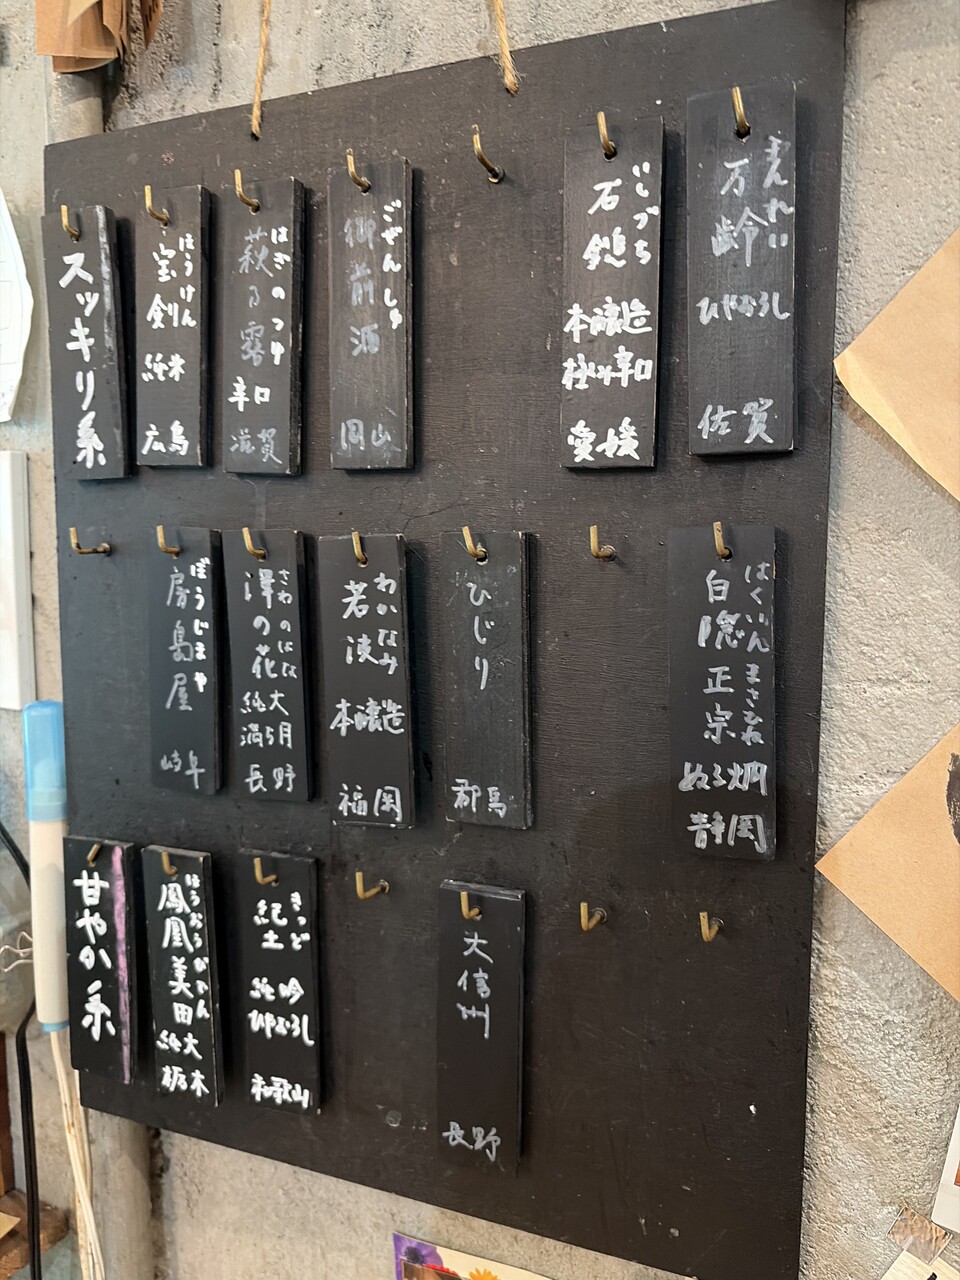 スッキリ系
ほうけん
宝剣
純米
広島
はぎのつゆ
萩乃露
辛口
滋賀
ごぜんしゅ
御前酒
岡山
いしづち
石鎚
本醸造
極み辛口
愛媛
まんれい
万齢
ひやおろし
佐賀
ぼうじまや
房島屋
岐阜
さわのはな
澤の花
純大
満ち月
長野
わかなみ
若波
本醸造
福岡
ひじり
郡馬
はくいんまさむね
白隠正宗
ぬる燗
静岡
甘やか系
ほうおうびでん
鳳凰美田
純大
栃木
きっど
紀土
純吟
ひやおろし
和歌山
大信州
長野